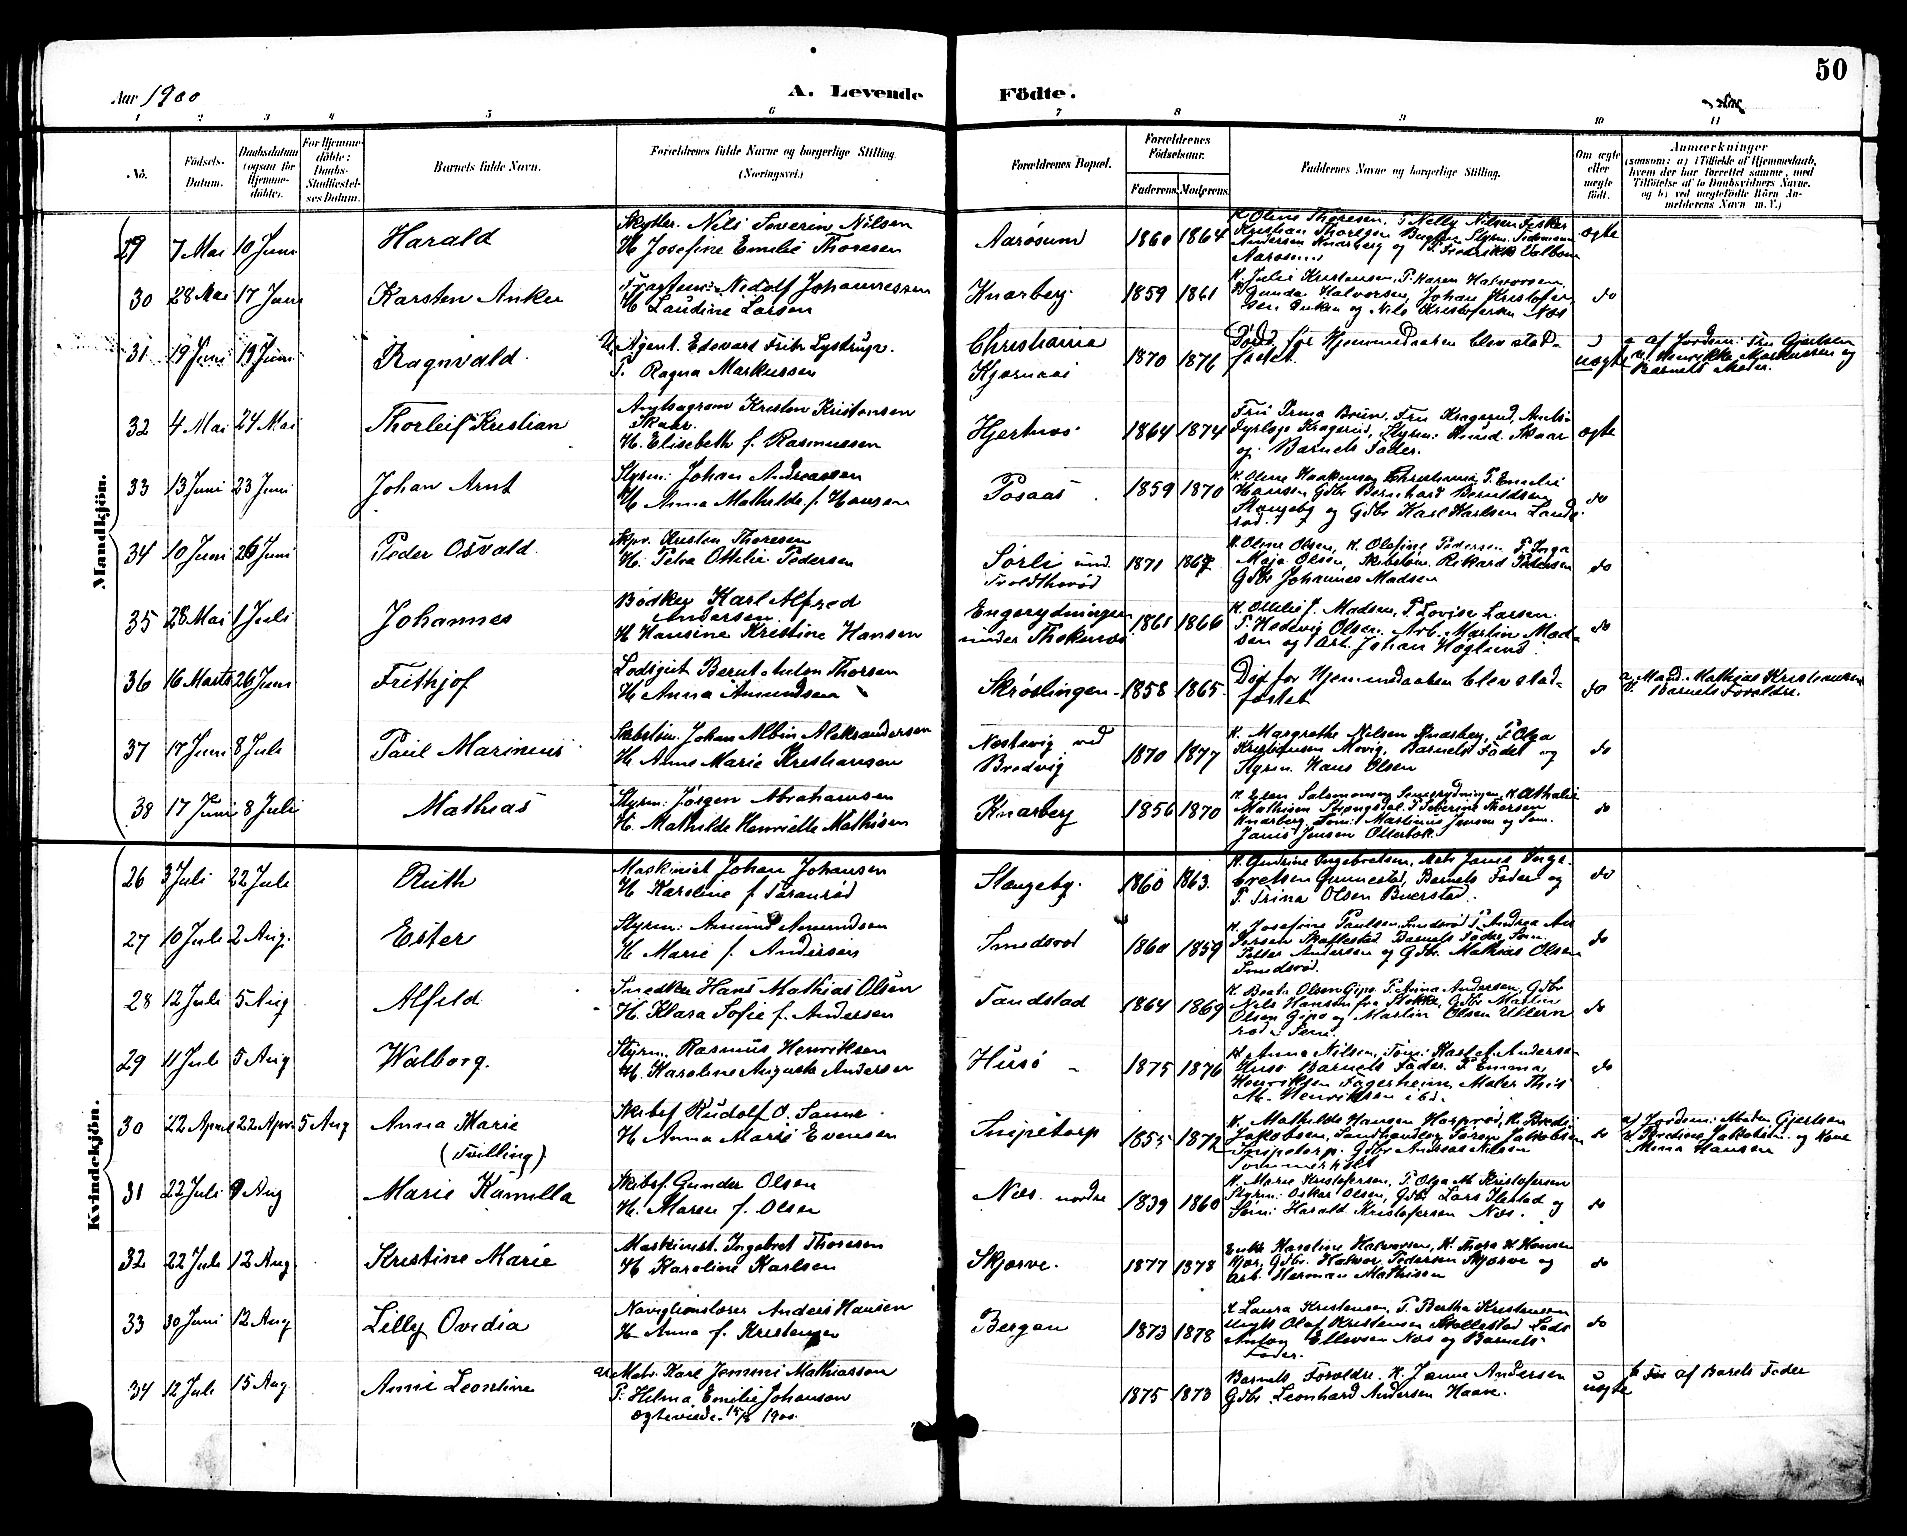 50
Aar 1900
A. Levende Födte.
1 2 3 4 5 6 7 8 9 10 11
No.
Födsels-Datum.
Daabsdatum (ogsaa for Hjemmedöbte).
For Hjemmedöbte: Daabs-Stadfæstelses Datum.
Barnets fulde Navn.
Forældrenes fulde Navne og borgerlige Stilling. (Næringsvei.)
Forældrenes Bopæl.
Forældrenes Födselsaar.
Faderens. Moderens.
Faddernes Navne og borgerlige Stilling.
Om ægte eller uægte födt.
Anmærkninger
(saasom: a) i Tilfælde af Hjemmedaab, hvem der har forrettet samme, med Tilföielse af to Daabsvidners Navne. og b) ved uægtefödte Börn Anmelderens Navn m. V.)
Mandkjön.
29 7 Mai 10 Juni Harald Nils Severin Nilsen
H. Josefine Emilie Thoresen Aarösund 1860 1864 K. Oline Thoresen, P. Nelly Nilsen, Fisker
Kristian Thoresen
Andersen Knarberg og P. Fredrikke Valbom
Aarösund ægte
30 28 Mai 17 Juni Karsten Anker Nedolf Johannessen
H. Laudine Larsen Knarberg 1859 1861 K. Julie Kristensen, P. Karen Halvorsen
Gunda Halvorsen, Johan Kristofer-
sen og Nils Kristofersen Næs do
31 19 Juni 19 Juni Ragnvald U. Agent. Edevard Fritz Lystrup
P. Ragna Markussen Christiania
Kjærnaas 1870 1876 Död för Hjemmedaaben blev stad-
fæstet. uægte a af Jordem: Fru Gjertsen
v. Henrikke Markussen og
Barnets Moder.
32 4 Mai 24 Mai Thorleif Kristian Kristen Kristensen
Skahr.
H. Elisabeth f. Rasmussen Hjertnæs 1864 1874 Fru Irma Brun, Fru Kragerud,
Kragerud, Styrm: Skaar
og Barnets Fader. ægte
33 13 Juni 23 Juni Johan Arnt Styrm: Johan Andreassen
H. Anna Mathilde f. Hansen 1859 1870 K. Oline Haakensen P. Emelie
Hansen Gdbr Bernhard Berntdsen
Slangeby og Gdbr Karl Karlsen Lande-
rød. do
34 10 Juni 26 Juni Peder Osvald Kristen Thoresen
H. Petra Ottilie Pedersen Sörli und.
1871 1867 K. Oline Olsen, K. Olefine Pedersen P. Inga
Maja Olsen, Skibstöm. Rikard Petersen
Gdbr Johannes Madsen do
35 28 Mai 1 Juli Johannes Bödker Karl Alfred
Andersen
H. Hansine Kristine Hansen Engerydningen
under Thokenæs 1865 1866 K. Ottilie J. Madsen, P. Lovise Larsen
P. Hedevig Olsen. Arb. Martin Mad-
sen og Arb. Johan Höglund do
36 16 Marts 26 Juni Frithjof Lodsgut Bernt Anton Thorsen
H. Anna Amundsen Skröslingen 1858 1865 Död for Hjemmedaaben blev stad-
fæstet do a. Mad. Mathias Kristensen
v. Barnets Foraldre.
37 17 Juni 8 Juli Paul Marinius Skibstöm. Johan Albin Aleksandersen
H. Anne Marie Kristiansen Næstevig ved
Bredvig 1870 1877 K. Margrethe Nilsen Knarberg, P. Olga
Kristiansen Movig, Barnets Fader og
Styrm. Hans Olsen do
38 17 Juni 8 Juli Mathias Styrm: Jörgen Abrahamsen
H. Mathilde Henriette Mathisen Knarberg 1856 1870 K. Elen Salomonsen K. Athalie
Mathisen P. Severine Thorsen
Knarberg, Söm: Martinius Jensen og Söm.
Janus Jensen Otterbæk. do
Kvindekjön.
26 3 Juli 22 Juli Ruth Maskinist Johan Johansen
H. Karoline f. Faranröd Slangeby 1860 1863 K. Gudrine Ingebretsen, Janus Inge-
bretsen Gunnestad, Barnets Fader og
P. Trina Olsen Buerstad. do
27 10 Juli 2 Aug. Ester Styrm: Amund Amundsen
H. Marie f. Andersen Smedsröd 1860 1859 K. Josefine Paulsen, Smidsröd P. Andrea An-
dersen Skaflestad Barnets Fader, Söm.
Peder Andersen og Gdbr. Mathias Olsen
Smidsröd. do
28 12 Juli 5 Aug Alfeld Snedker Hans Mathias Olsen
H. Klara Sofie f. Andersen Sandstad 1864 1869 K. Beate Olsen Gipö P. Anna Andersen, Gdbr
Nils Hansen fra Stokke, Gdbr Martin
Olsen Gipö og Martin Olsen
Sem. do
29 11 Juli 5 Aug Walborg. Styrm. Rasmus Henriksen
H. Karoline Augusta Andersen Husö 1875 1876 K. Anna Nilsen, Söm: Andersen
Husö Barnets Fader. P. Emma
Henriksen Fagerheim, Maler Thi's
M. Henriksen ibd. do
30 22 April 22 Apr. 5 Aug Anna Marie
(Tvilling) Skibsf. Rudolf O. Sanne
H. Anna Marie Evensen Snipetorp 1855 1872 K. Mathilde Hansen K. Bredi
Jakobsen, Sören Jakobsen
Snipetorp. Gdbr Andreas Nilsen
Sommerhilt do a/ Jordem: Gjertsen
v Bredine Jakobsen og Kone
Mina Hansen
31 22 Juli 9 Aug Marie Kamilla Skibsf. Gunder Olsen
H. Maren f. Olsen Næs. nordre 1839 1860 K. Marie Kristofersen, P. Olga M. Kristofersen
Styrm: Oskar Olsen, Gdbr. Lars Ilestad og
Söm: Harald Kristofersen Næs. do
32 22 Juli 12 Aug Kristine Marie Maskinist. Ingebret Thoresen
H. Karoline Karlsen Skjærve. 1877 1878 Enke Karoline Halvorsen, K. Thora H. Hansen
Gdbr. Halvor Pedersen Skjærve og
Arb. Herman Mathisen do
33 30 Juni 12 Aug Lilly Ovidia Navigtionslærer Anders Hansen
H. Anna f. Kristensen Bergan 1873 1878 K. Laura Kristensen, P. Bertha Kristensen
Ungk Olaf Kristensen Lods
Anton Ellevsen Næs og Barnets
Fader. do
34 12 Juli 15 Aug Anni Leontine U. Matr. Karl Jemmi Mathiassen
P. Helma Emilie Johansen
Ægteviede 15/8 1900. 1875 1873 Barnets Foreldre. K. Janne Andersen
Gdbr Leonhard Andersen Haave. uægte b af Barnets Fader